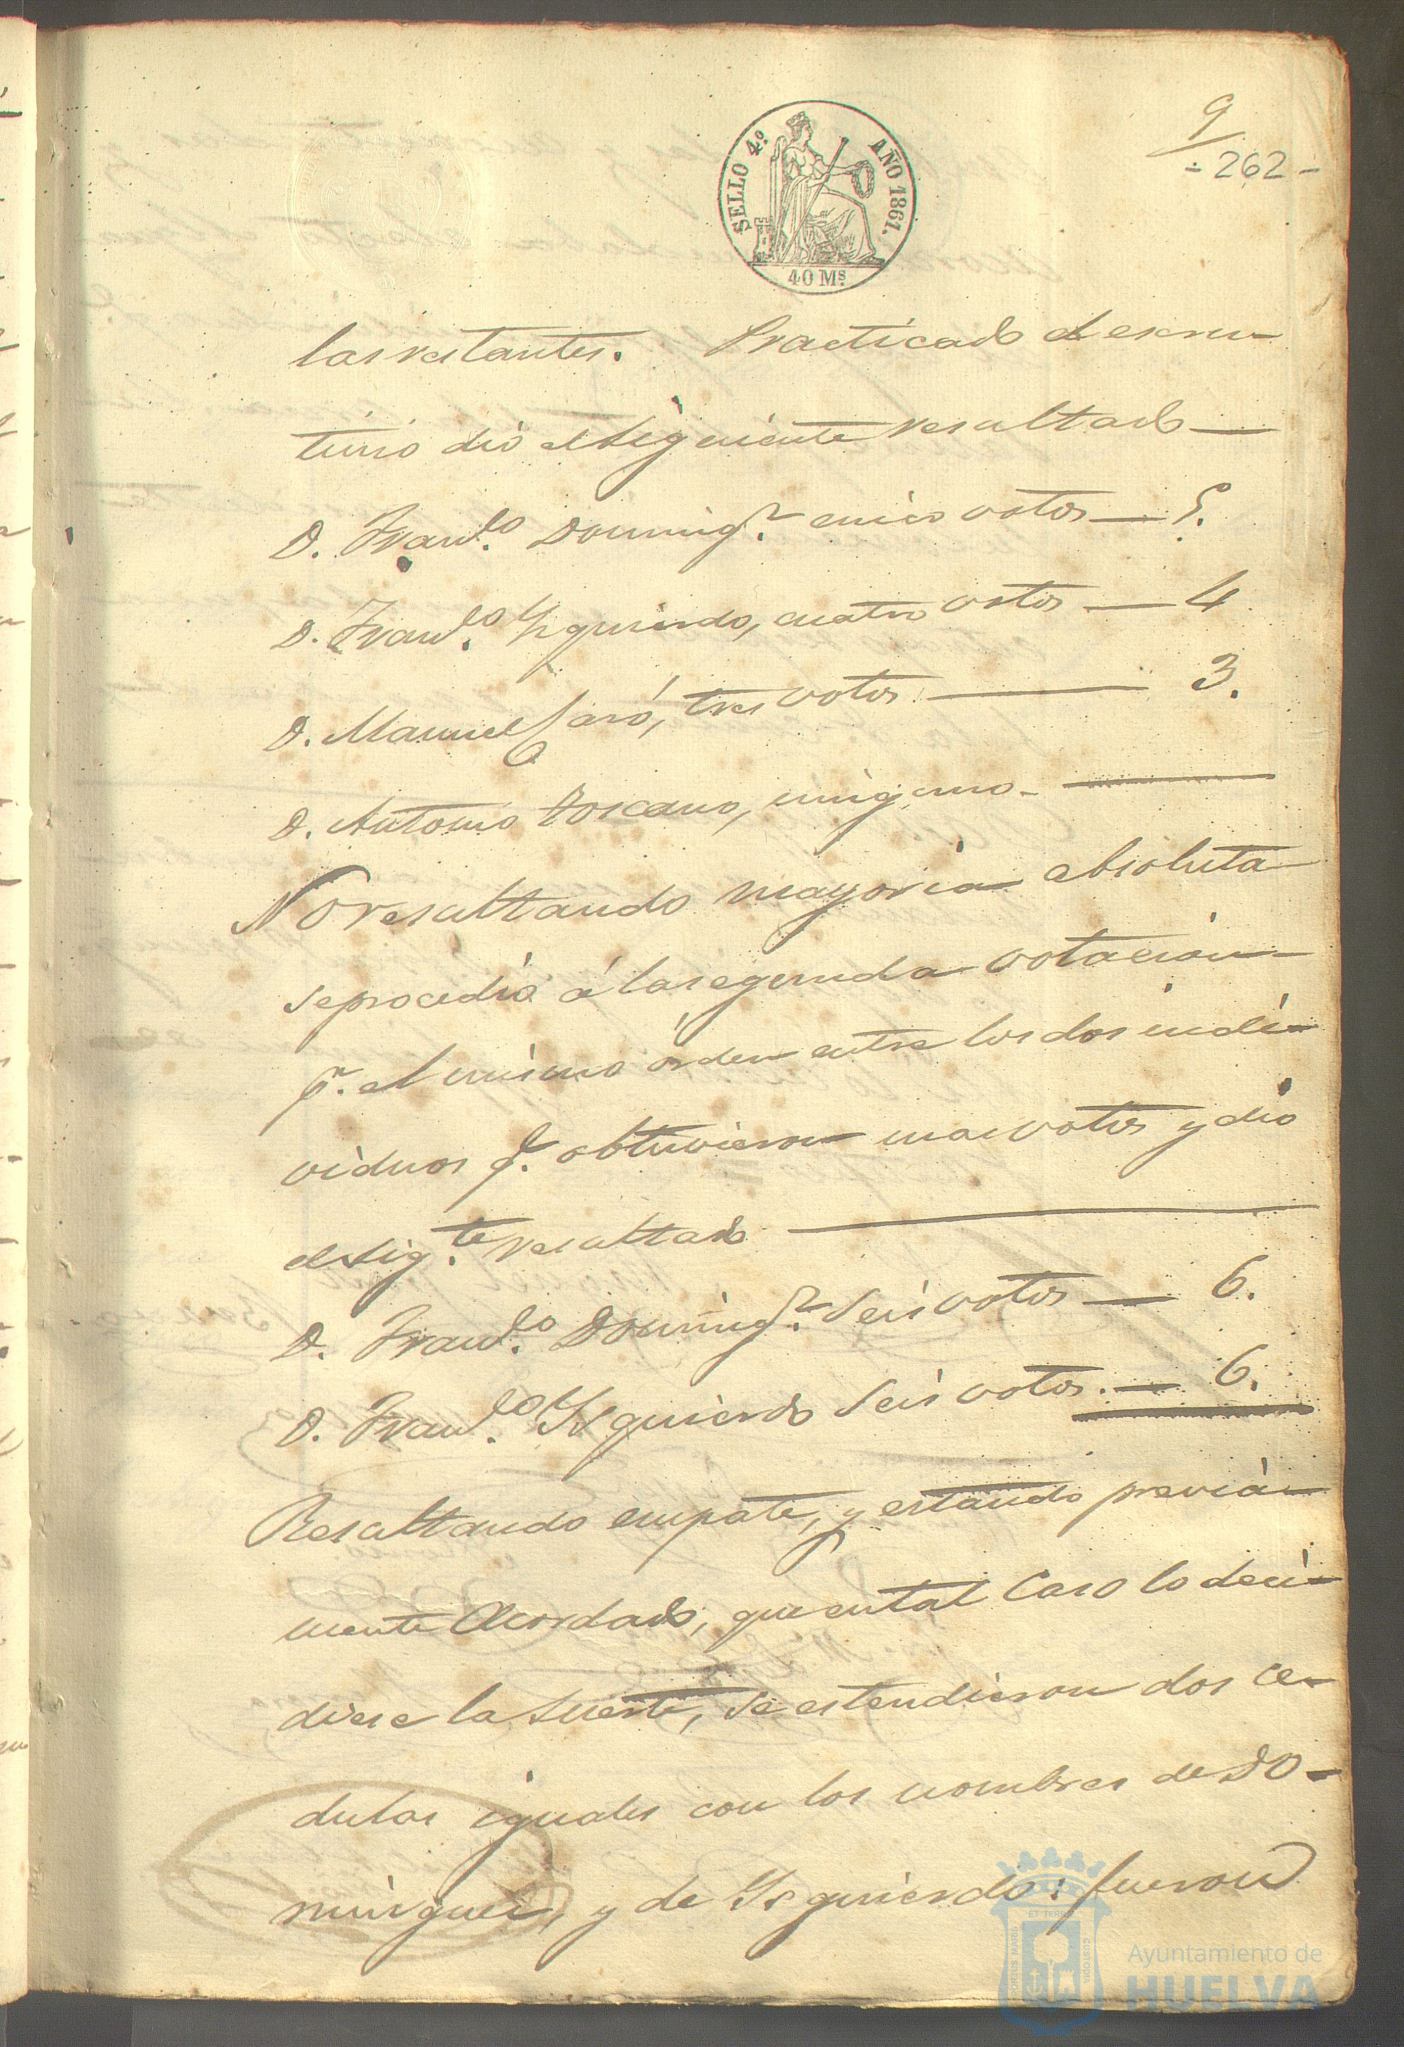 9
÷ 262 -
SELLO 4.º AÑO 1861.
40 Ms.
las restantes. Practicado el escru-
tinio dió el siguiente resultado —
D. Franco. Doming.z cinco votos — 5.
D. Franco. Yzquierdo, cuatro votos — 4
D. Manuel Jaró, tres votos — 3.
D. Antonio Toscano, ninguno. —
No resultando mayoria absoluta
se procedió á la segunda votacion
pr. el mismo órden entre los dos indi-
viduos q. obtuvieron mas votos y dió
el sigte. resultado —
D. Franco. Doming.z seis votos — 6.
D. Franco. Yzquierdo seis votos. — 6.
Resultando empate, y estando previa-
mente acordado, que en tal caso lo deci-
diese la suerte, se estendieron dos ce-
dulas iguales con los nombres de Do-
minguez, y de Yzquierdo: fueron
Ayuntamiento de
HUELVA